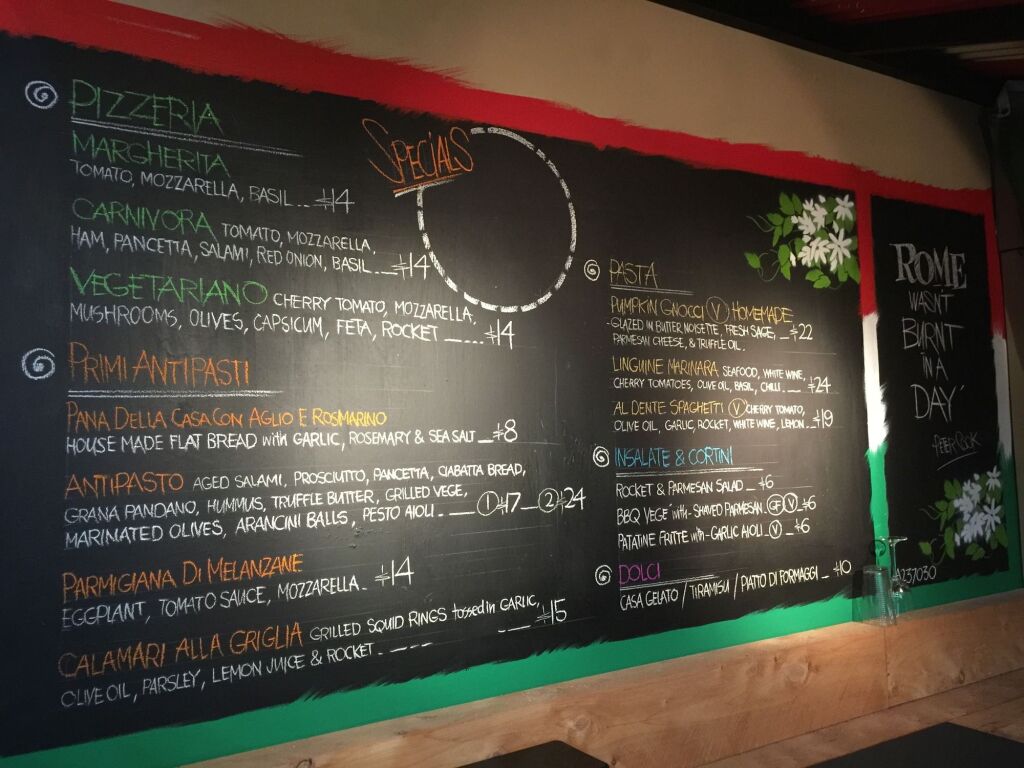 PIZZERIA
MARGHERITA
TOMATO, MOZZARELLA, BASIL ... $14
CARNIVORA TOMATO, MOZZARELLA,
HAM, PANCETTA, SALAMI, RED ONION, BASIL .. $14
VEGETARIANO CHERRY TOMATO, MOZZARELLA,
MUSHROOMS, OLIVES, CAPSICUM, FETA, ROCKET ---- $14
PRIMI ANTIPASTI
PANA DELLA CASA CON AGLIO E ROSMARINO
HOUSE MADE FLAT BREAD with GARLIC, ROSEMARY & SEA SALT _ $8
ANTIPASTO AGED SALAMI, PROSCIUTTO, PANCETTA, CIABATTA BREAD,
GRANA PANDANO, HUMMUS, TRUFFLE BUTTER, GRILLED VEGE,
MARINATED OLIVES, ARANCINI BALLS, PESTO AIOLI. ___ ① $17 __ ② $24
PARMIGIANA DI MELANZANE
EGGPLANT, TOMATO SAUCE, MOZZARELLA _ $14
CALAMARI ALLA GRIGLIA GRILLED SQUID RINGS tossed in GARLIC,
OLIVE OIL, PARSLEY, LEMON JUICE & ROCKET. ---- __ $15
SPECIALS
PASTA
PUMPKIN GNOCCI V HOMEMADE
-GLAZED IN BUTTER NOISETTE, FRESH SAGE,
PARMESAN CHEESE, & TRUFFLE OIL. _ $22
LINGUINE MARINARA SEAFOOD, WHITE WINE,
CHERRY TOMATOES, OLIVE OIL, BASIL, CHILLI ... $24
AL DENTE SPAGHETTI V CHERRY TOMATO,
OLIVE OIL, GARLIC, ROCKET, WHITE WINE, LEMON _ $19
INSALATE & CORTINI
ROCKET & PARMESAN SALAD _ $6
BBQ VEGE with - SHAVED PARMESAN. GF V $6
PATATINE FRITTE with - GARLIC AIOLI _ V _ $6
DOLCI
CASA GELATO / TIRAMISU / PIATTO DI FORMAGGI _ $10
ROME
WASN'T
BURNT
IN A
DAY'
237030